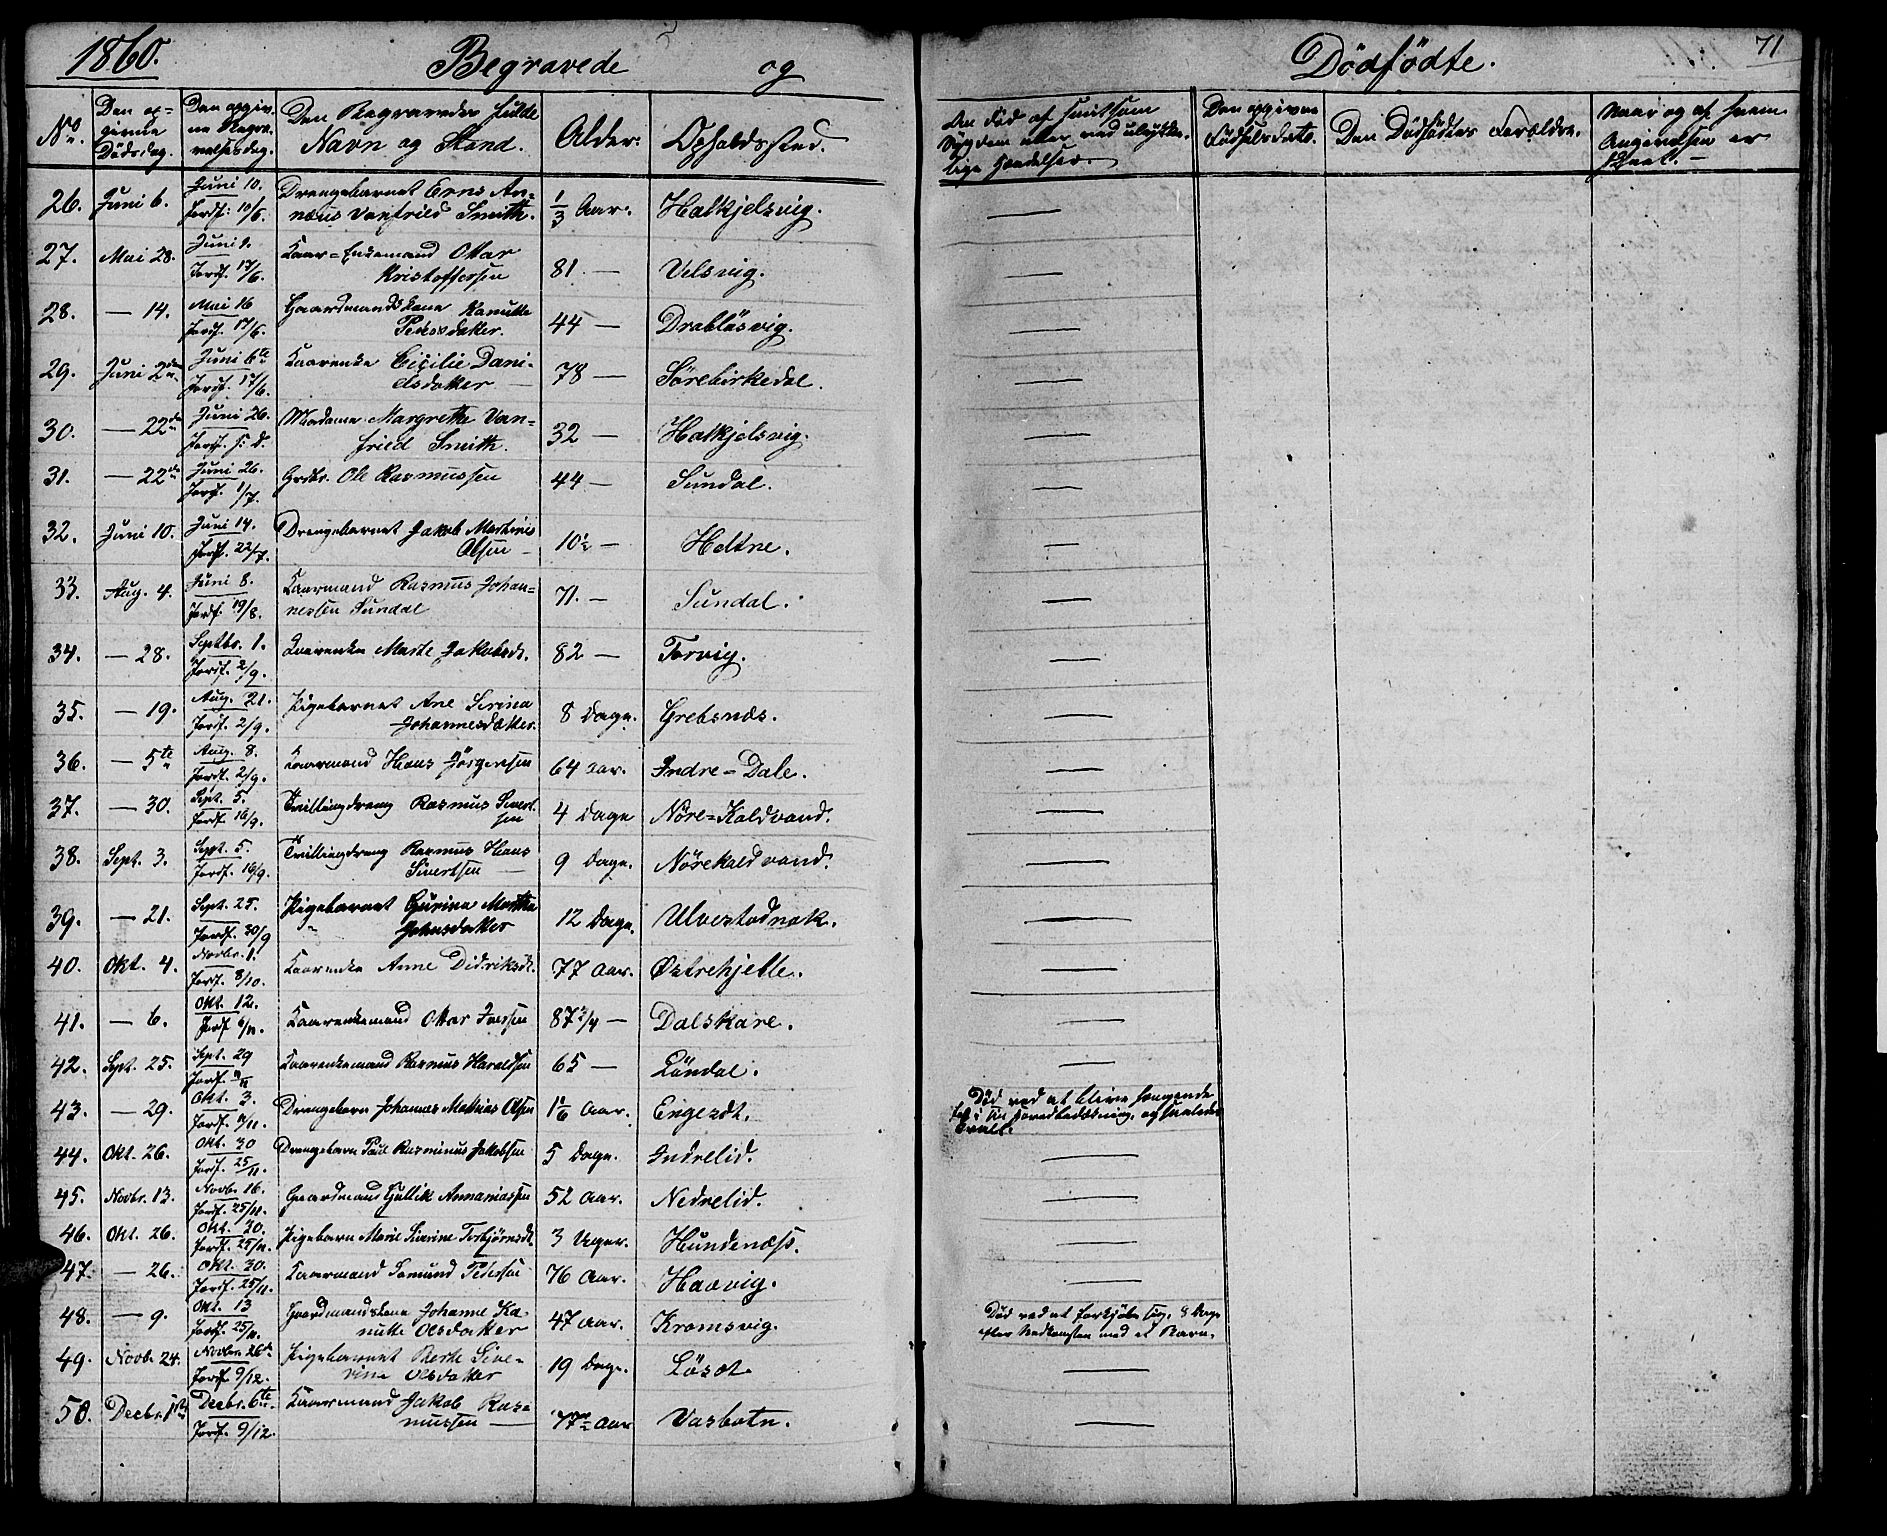 1860. Begravede og Dödfödte. 71
No. Den opgivne Dödsdag. Den opgivne Begravelsesdag. Den Begravedes fulde Navn og Stand. Alder. Opholdssted. Om Död af smitsom Sygdom eller ved ulykkelige Hændelser. Den opgivne Födselsdato. Den Dödfödtes Forældre. Naar og af hvem Angivelsen er skeet.
26. Juni 6. Juni 10. Jordf: 10/6. Drengebarnet Erns An-
næus Vanfried Smith. 1/3 Aar. Hatkjelsvig. —
27. Mai 28. Juni 2. Jordf. 17/6. Kaar-Enkemand Ottar
Kristoffersen 81 — Velsvig. —
28. — 14. Mai 16 Jordf. 17/6. Gaardmandskone Kanutte
Pedersdatter. 44 — Drabløsvig. —
29. Juni 2den Juni 6te Jordf. 17/6. Kaarenke Cicilie Dani-
elsdatter — 78 — Sörebirkedal. —
30. — 22de Juni 26. Jordf. s: D. Madame Margrethe Van-
fried Smith. 32 — Hatkjelsvig. —
31. — 22de Juni 26. Jordf. 1/7. Grdbr. Ole Rasmussen 44 — Sundal. —
32. Juni 10. Juni 14. Jordf. 22/7. Drengebarnet Jakob Martinus
Olsen — 10½ — Heltne. —
33. Aug. 4. Juni 8. Jordf. 19/8. Kaarmand Rasmus Johan-
nessen Sundal 71. — Sundal. —
34. — 28. Septbr. 1. Jordf. 2/9. Kaarenke Marte Jakobsdt. 82 — Torvig. —
35. — 19. Aug. 21. Jordf. 2/9. Pigebarnet Ane Serina
Johannesdatter. 8 Dage. Grebsnæs. —
36. — 5te Aug. 8. Jordf. 2/9. Kaarmand Hans Jörgensen 64 Aar. Indre-Dale. —
37. — 30. Sept. 5. Jordf. 16/9. Tvillingdreng Rasmus Sivert-
sen 4 Dage Nöre-Koldvand. —
38. Sept. 3. Sept. 5. Jordf. 16/9. Tvillingdreng Rasmus Hans
Sivertsen — 9 Dage. Nörekoldvand. —
39. — 21. Sept. 25. Jordf. 30/9 Pigebarnet Gurine Marthe
Johnsdatter 12 Dage. Ulvestadnak. —
40. Okt. 4. Novbr. 1. Jordf. 8/10. Kaarenke Anne Didriksdt. 77 Aar. Østrehjelle. —
41. — 6. Okt. 12. Jordf. 6/11. Kaarenkemand Ottar Iversen 87¾ — Dalskare. —
42. Sept. 25. Sept. 29 Jordf. Kaarenkemand Rasmus Haraldsen 65 — Löndal. —
43. — 29. Okt. 3. Jordf. Drengebarn Johannes Mathias Olsen 1 1/6 Aar. Engezdt. Död ved at blive hængende
fast i sin Hovedbedækning, og saaledes
kvalt.
44. Okt. 26. Okt. 30 Jordf. 25/11. Drengebarn Paul Rasminus Jakobsen 5 Dage. Indrelid. —
45. Novbr. 13. Novbr. 16. Jordf. 25/11. Gaardmand Gullik Annaniassen 52 Aar. Nedrelid. —
46. Okt. 26. Okt. 30. Jordf. 25/11. Pigebarn Marie Sivrine Torbjörnsdt. 3 Uger. Hundenæss. —
47. — 26. Okt. 30. Jordf. 25/11. Kaarmand Samund Pedersen 76 Aar. Haavig. —
48. — 9. Okt. 13 Jordf. 25/11. Gaardmandskone Johanne Ka-
nutte Olsdatter 47 Aar. Kromsvig. Död ved at forkjöle sig, 8 Dage
efter Nedkomsten med et Barn.
49. Novb. 24. Novbr. 26de Jordf. 9/12. Pigebarnet Berte Sive-
rine Olsdatter 19 Dage. Lösæt —
50. Decbr. 1ste Decbr. 6te Jordf. 9/12. Kaarmand Jakob Ras-
mussen — 77½ Aar Vasbotn. —